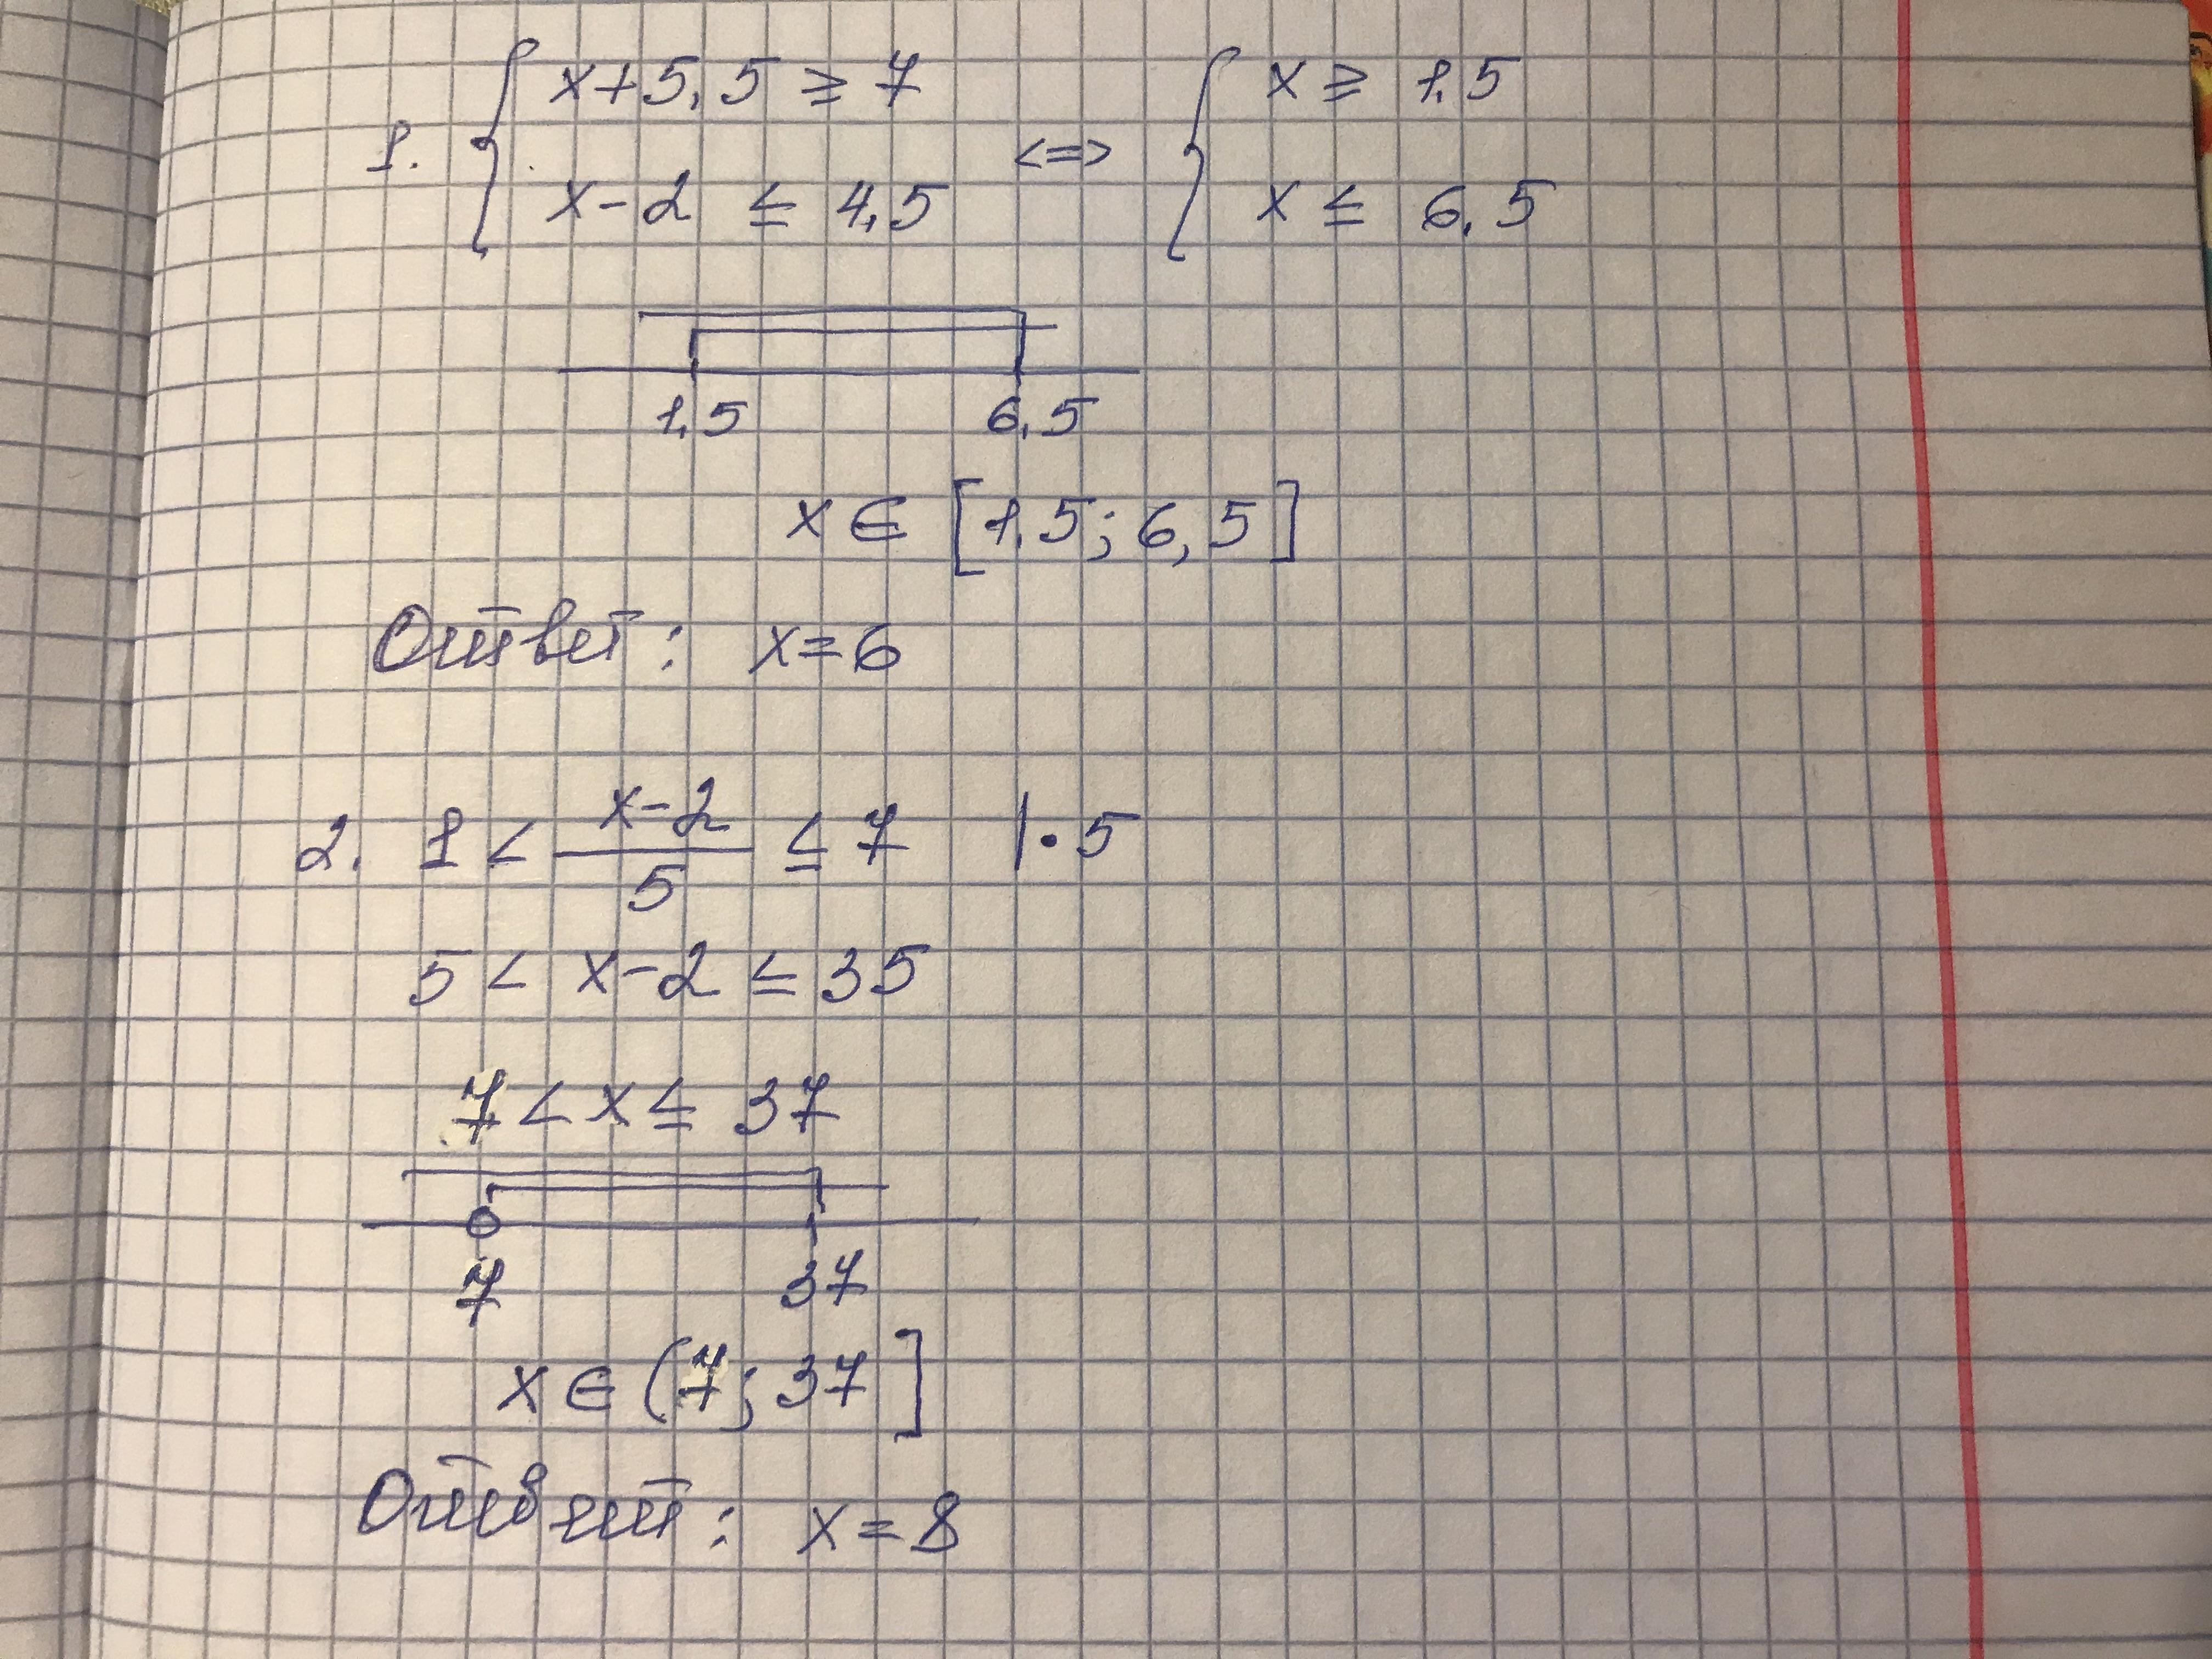 1. { x+5,5 ≥ 7 <=> { x ≥ 1,5
x-2 ≤ 4,5 x ≤ 6,5
1,5 6,5
x ∈ [1,5; 6,5]
Ответ: x=6
2. 1 < (x-2)/5 ≤ 7 |·5
5 < x-2 ≤ 35
7 < x ≤ 37
7 37
x ∈ (7; 37]
Ответ: x=8